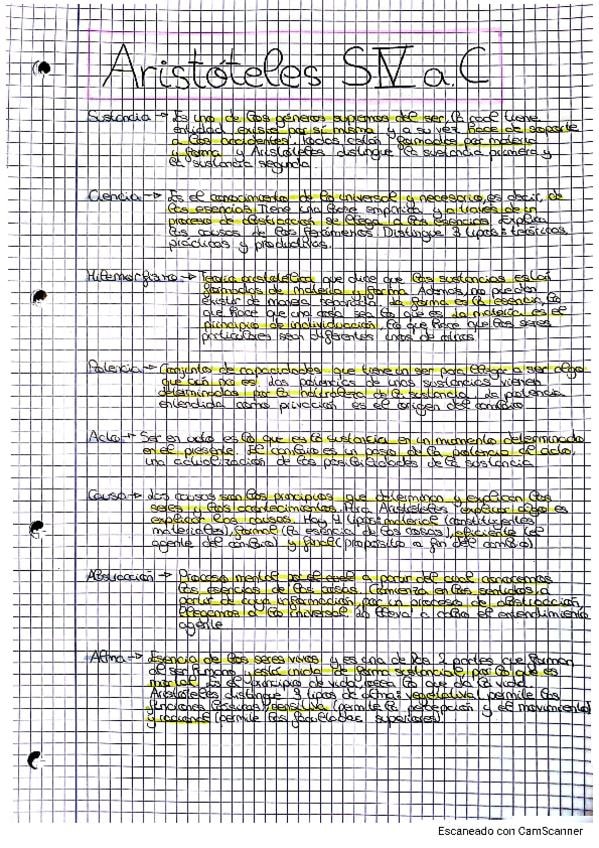 Aristóteles SIV a.C
Sustancia → Es uno de los géneros supremos del ser, la cual tiene
entidad, existe por sí misma y a su vez, hace de soporte
a los accidentes. Todas están formadas por materia
y forma y Aristóteles distingue la sustancia primera y
la sustancia segunda
Ciencia → Es el conocimiento de lo universal y necesario, es decir, de
las esencias. Tiene una base empírica y a través de un
proceso de abstracción se llega a las esencias. Explica
las causas de los fenómenos. Distingue 3 tipos: teóricas,
prácticas y productivas.
Hilemorfismo → Teoría aristotélica que dice que las sustancias están
formadas de materia y forma. Además, no pueden
existir de manera separada. La forma es la esencia, lo
que hace que una cosa sea lo que es. La materia es el
principio de individuación, lo que hace que los seres
particulares sean diferentes unos de otros
Potencia → Conjunto de capacidades que tiene un ser para llegar a ser algo
que aún no es. Las potencias de unas sustancias vienen
determinadas por la naturaleza de la sustancia. La potencia
entendida como privación es el origen del cambio
Acto → Ser en acto es lo que es la sustancia en un momento determinado
en el presente. El cambio es un paso de la potencia al acto,
una actualización de las posibilidades de la sustancia
Causa → Las causas son los principios que determinan y explican los
seres y los acontecimientos. Para Aristóteles explicar algo es
explicar las causas. Hay 4 tipos: material (constituyentes
materiales), formal (la esencia de las cosas), eficiente (el
agente del cambio) y final (propósito o fin del cambio)
Abstracción → Proceso mental a partir del cual conocemos
las esencias de las cosas. Comienza en los sentidos, a
partir de cuya información, por un proceso de abstracción,
llegamos a lo universal. Lo lleva a cabo el entendimiento
agente
Alma → Esencia de los seres vivos y es una de las 2 partes que forman
al ser humano y está unida de forma sustancial, por lo que es
mortal. Es el principio de vida, es lo que da la vida.
Aristóteles distingue 3 tipos de alma: vegetativa (permite las
funciones básicas), sensitiva (permite la percepción y el movimiento)
y racional (permite las facultades superiores)
Escaneado con CamScanner